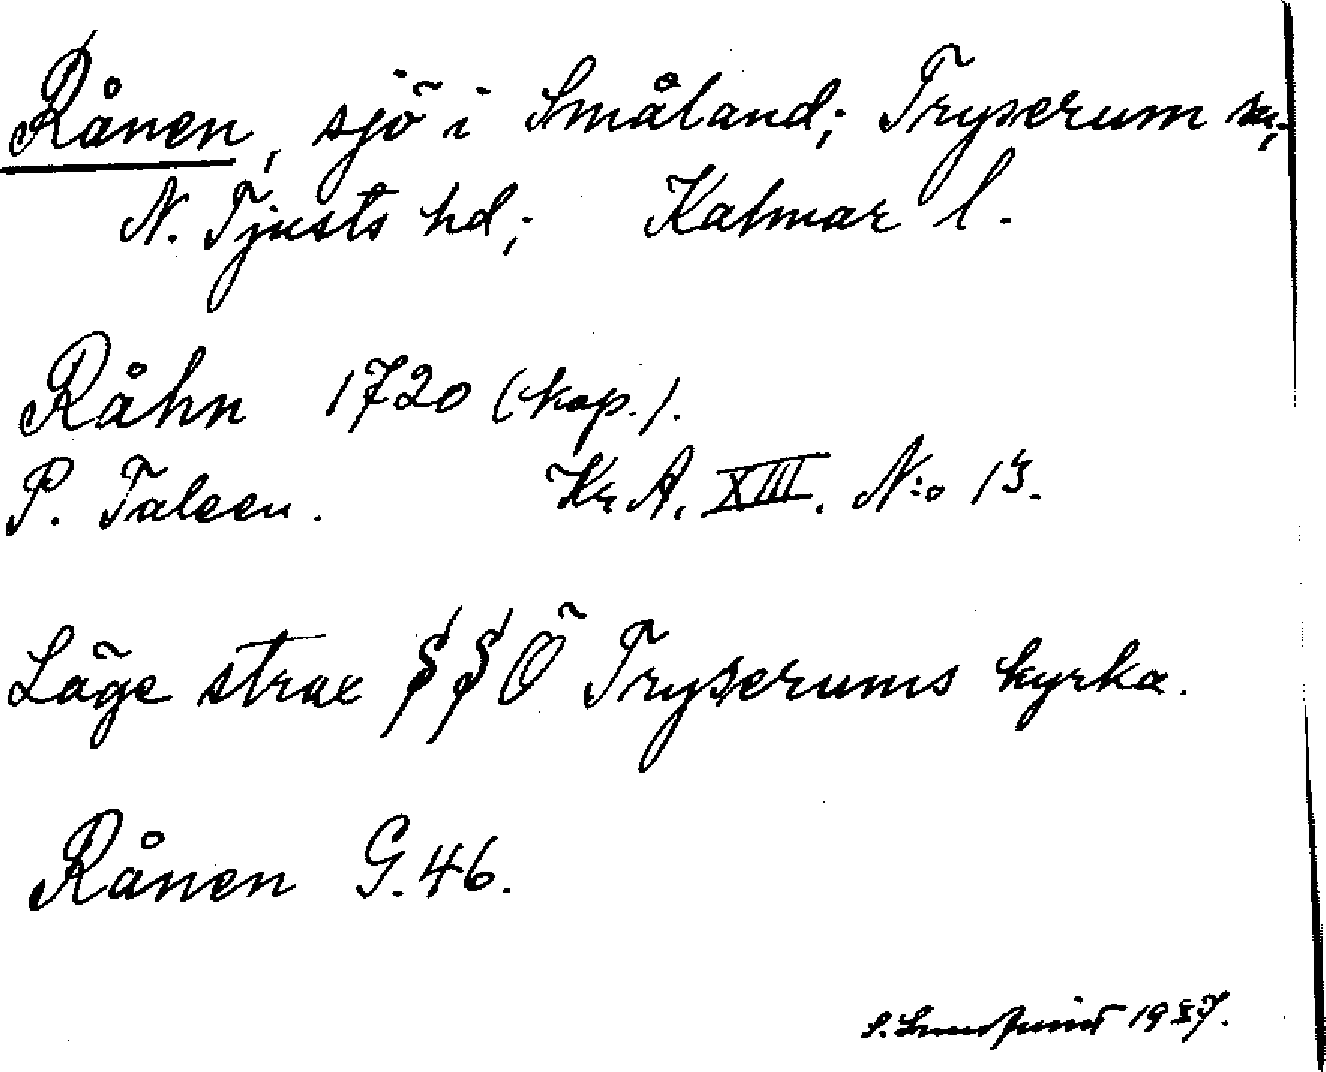 Rånen, sjö i Småland; Tryserum sn;
N. Tjusts hd; Kalmar l.
Råhn 1720 (kop.).
P. Taleen. Kr. A. XIII. N:o 13.
Läge strax SSÖ Tryserums kyrka.
Rånen G. 46.
S. 19